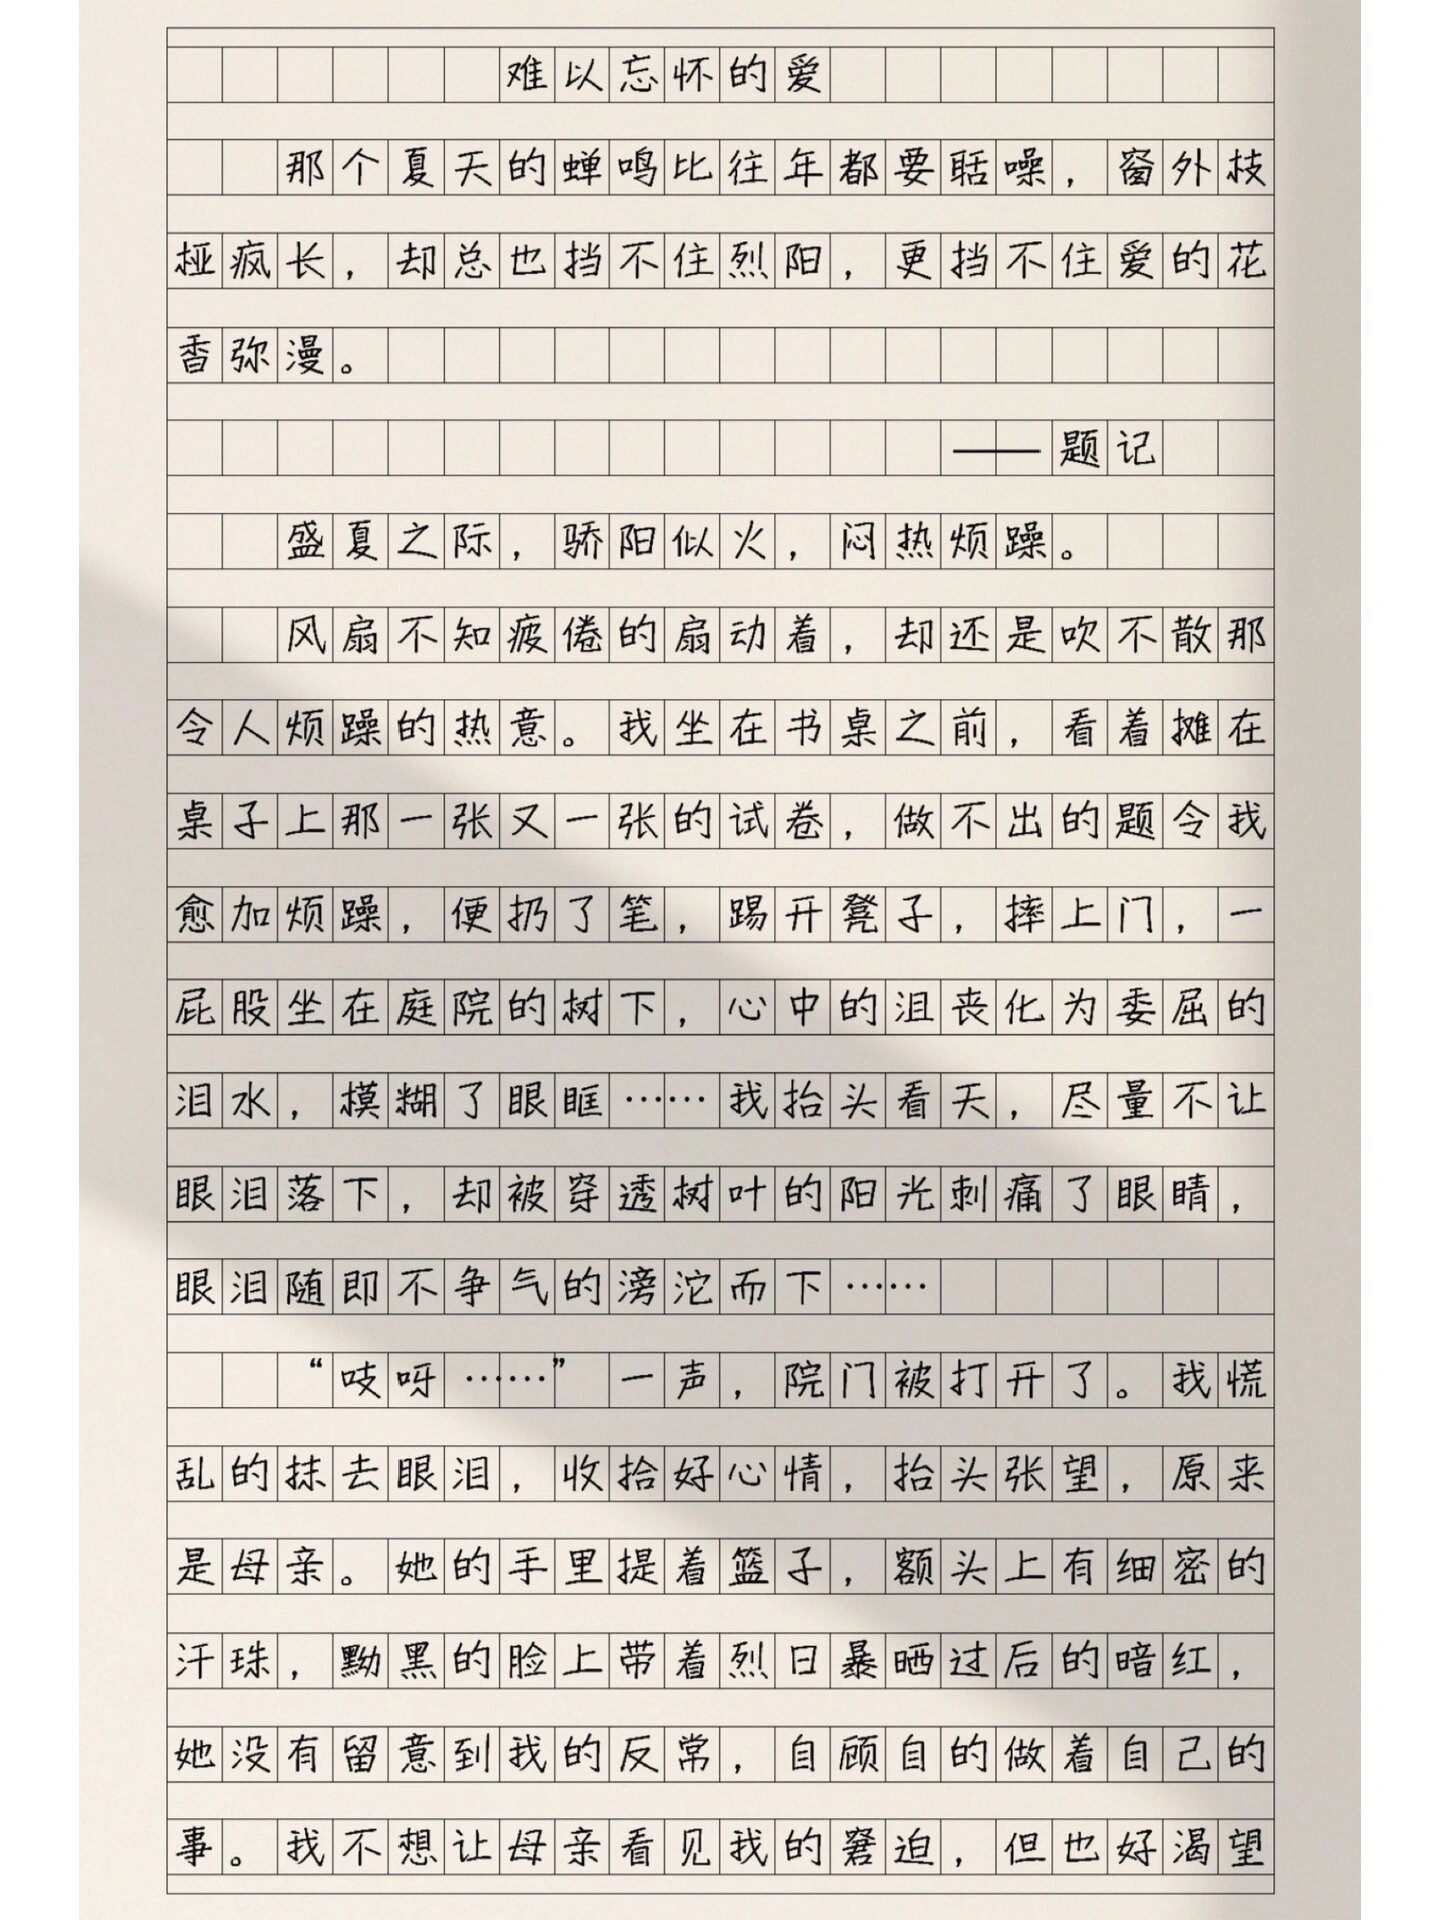 难以忘怀的爱
那个夏天的蝉鸣比往年都要聒噪，窗外枝
桠疯长，却总也挡不住烈阳，更挡不住爱的花
香弥漫。
——题记
盛夏之际，骄阳似火，闷热烦躁。
风扇不知疲倦的扇动着，却还是吹不散那
令人烦躁的热意。我坐在书桌之前，看着摊在
桌子上那一张又一张的试卷，做不出的题令我
愈加烦躁，便扔了笔，踢开凳子，摔上门，一
屁股坐在庭院的树下，心中的沮丧化为委屈的
泪水，模糊了眼眶……我抬头看天，尽量不让
眼泪落下，却被穿透树叶的阳光刺痛了眼睛，
眼泪随即不争气的滂沱而下……
“吱呀……”一声，院门被打开了。我慌
乱的抹去眼泪，收拾好心情，抬头张望，原来
是母亲。她的手里提着篮子，额头上有细密的
汗珠，黝黑的脸上带着烈日暴晒过后的暗红，
她没有留意到我的反常，自顾自的做着自己的
事。我不想让母亲看见我的窘迫，但也好渴望